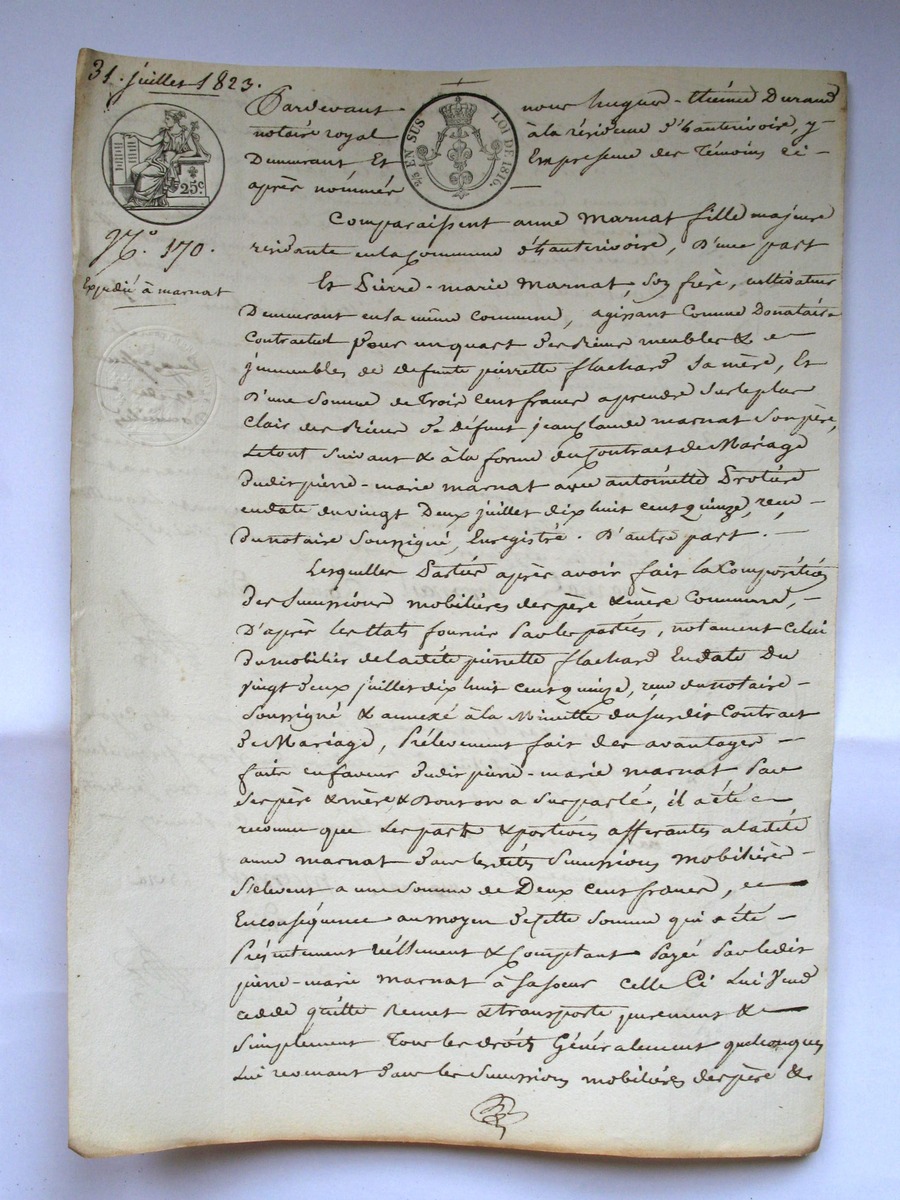 31. juillet 1823.
Pardevant nous hugue-thémé Durand
notaire royal à la résidence d'hauterivoire, y
Demeurant Et En presence des Témoins ci-
après nommés —
25 c
⅖ EN SUS LOI DE 1816.
N.o 170.
Expédié à marnat
Comparaissent anne Marnat fille majeure
residante en la Commune d'hauterivoire, D'une part
Et Pierre-marie Marnat, son frère, cultivateur
Demeurant en la même Commune, agissant Comme Donataire
Contractuel pour un quart des biens meubles & —
jmmeubles de defunte pierrette flachard sa mère, Et
D'une Somme de Trois Cent francs aprendre sur le plus
clair des biens de défunt jean claude marnat son père,
Le tout suivant & à la forme du Contract de Mariage
dudit pierre-marie marnat avec antoinette Drotière
en date du vingt Deux juillet dix huit cent quinze, recu —
Du notaire Soussigné, Enregistré. D'autre part. —
Lesquelles Parties après avoir fait la Composition
des Successions mobilières des père & mère Communs, —
D'après les Etats fournis par les parties, notament Celui
Du mobilier de ladite pierrette flachard En date Du
vingt deux juillet dix huit cent quinze, recu du notaire —
Soussigné & annexé à la Minutte du susdit Contract
de Mariage, Prélevement fait des avantages —
faits en faveur dudit pierre-marie marnat par
ses père & mère & Dont on a sus parlé, il a été —
reconnu que Les parts & portions afferantes a ladite
anne marnat dans lesdites Successions mobilières —
s'elevent a une somme de Deux cent francs, et —
En conséquence au moyen de cette Somme qui a été —
Présentement réellement & Comptant Payée Par ledit
pierre-marie marnat à sa soeur celle Ci Lui Vend
cedde quitte Remet & transporte purement & —
simplement Tous les droits Généralement quelconques
Lui revenant dans les Successions mobilières des père &